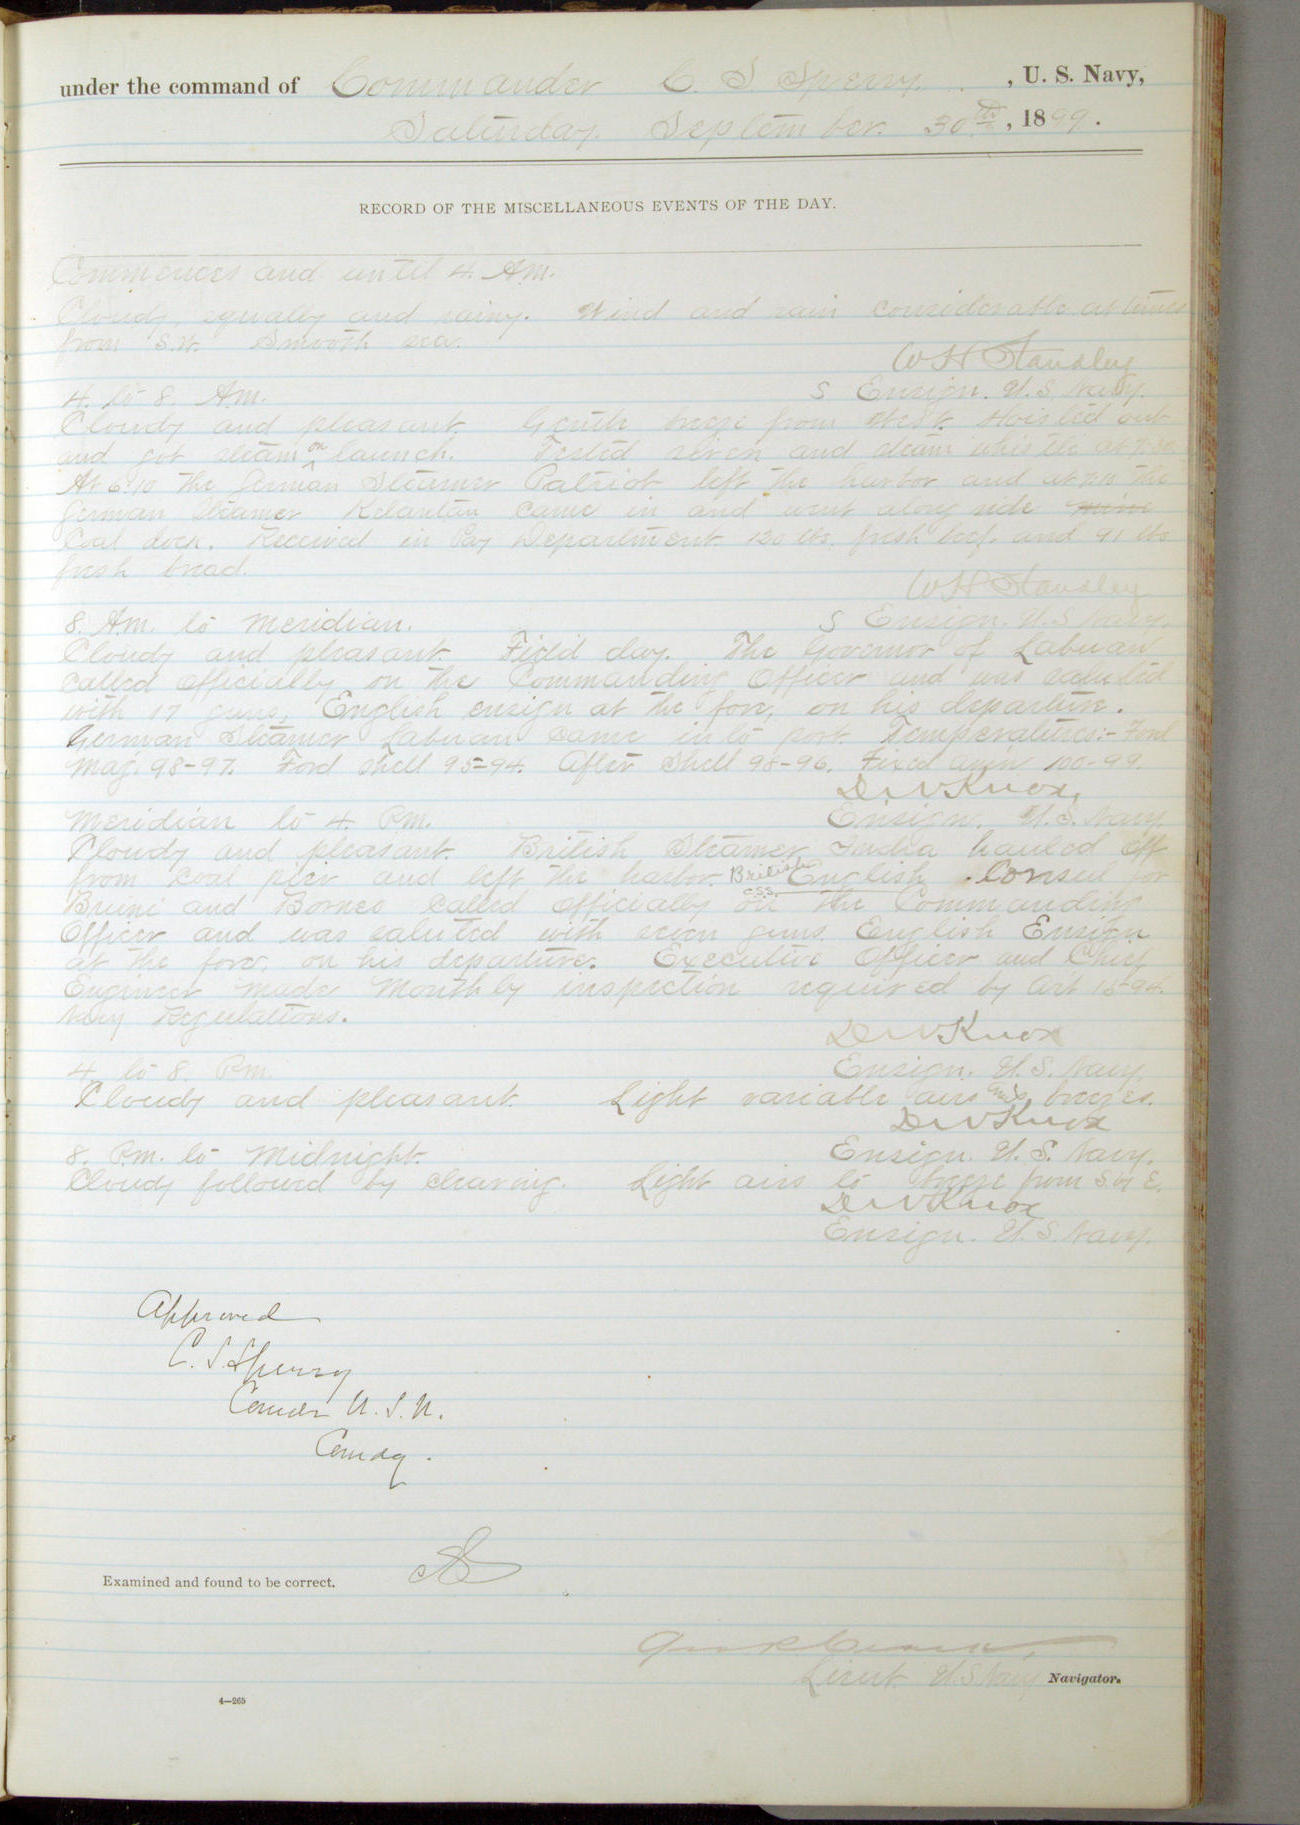 under the command of Commander C. S. Sperry, U. S. Navy,
Saturday September 30th, 1899.
RECORD OF THE MISCELLANEOUS EVENTS OF THE DAY.
Commences and until 4. A.m.
Cloudy, squally and rainy. Wind and rain considerable at times
from S.W. Smooth sea.
W H Standley
S Ensign. U.S. Navy.
4. to 8. A.m.
Cloudy and pleasant. Gentle breeze from West. Hoisted out
and got steam on launch. Tested siren and steam whistle at 7.30
At 6.10 the German Steamer Patriot left the harbor and at the
German Steamer Kelantan came in and went along side
Coal dock. Received in Pay Department 120 lbs. fresh beef. and 91 lbs
fresh bread.
W H Standley
S Ensign. U.S. Navy.
8. A.m. to Meridian.
Cloudy and pleasant. Field day. The Governor of Labuan
called officially on the Commanding Officer and was saluted
with 17 guns, English ensign at the fore, on his departure.
German Steamer Labuan came into port. Temperatures:- Ford
Mag. 98-97. Ford Shell 95-94. After Shell 98-96. Fixed amn 100-99.
D W Knox,
Ensign. U.S. Navy
Meridian to 4. P.m.
Cloudy and pleasant. British Steamer India hauled off
from coal pier and left the harbor. British English Consul for
CSS
Bruni and Borneo called officially on the Commanding
Officer and was saluted with seven guns. English Ensign
at the fore, on his departure. Executive Officer and Chief
Engineer made Monthly inspection required by Art 1594.
Navy Regulations.
D W Knox
Ensign. U.S. Navy.
4 to 8. P.m.
Cloudy and pleasant. Light variable airs and breezes.
D W Knox
Ensign. U.S. Navy.
8. P.m. to Midnight.
Cloudy followed by clearing. Light airs to breeze from S by E.
D W Knox
Ensign. U.S. Navy.
Approved
C. S. Sperry
Comdr U. S. N.
Comdg.
Examined and found to be correct.
Lieut. U.S. Navy Navigator.
4—265